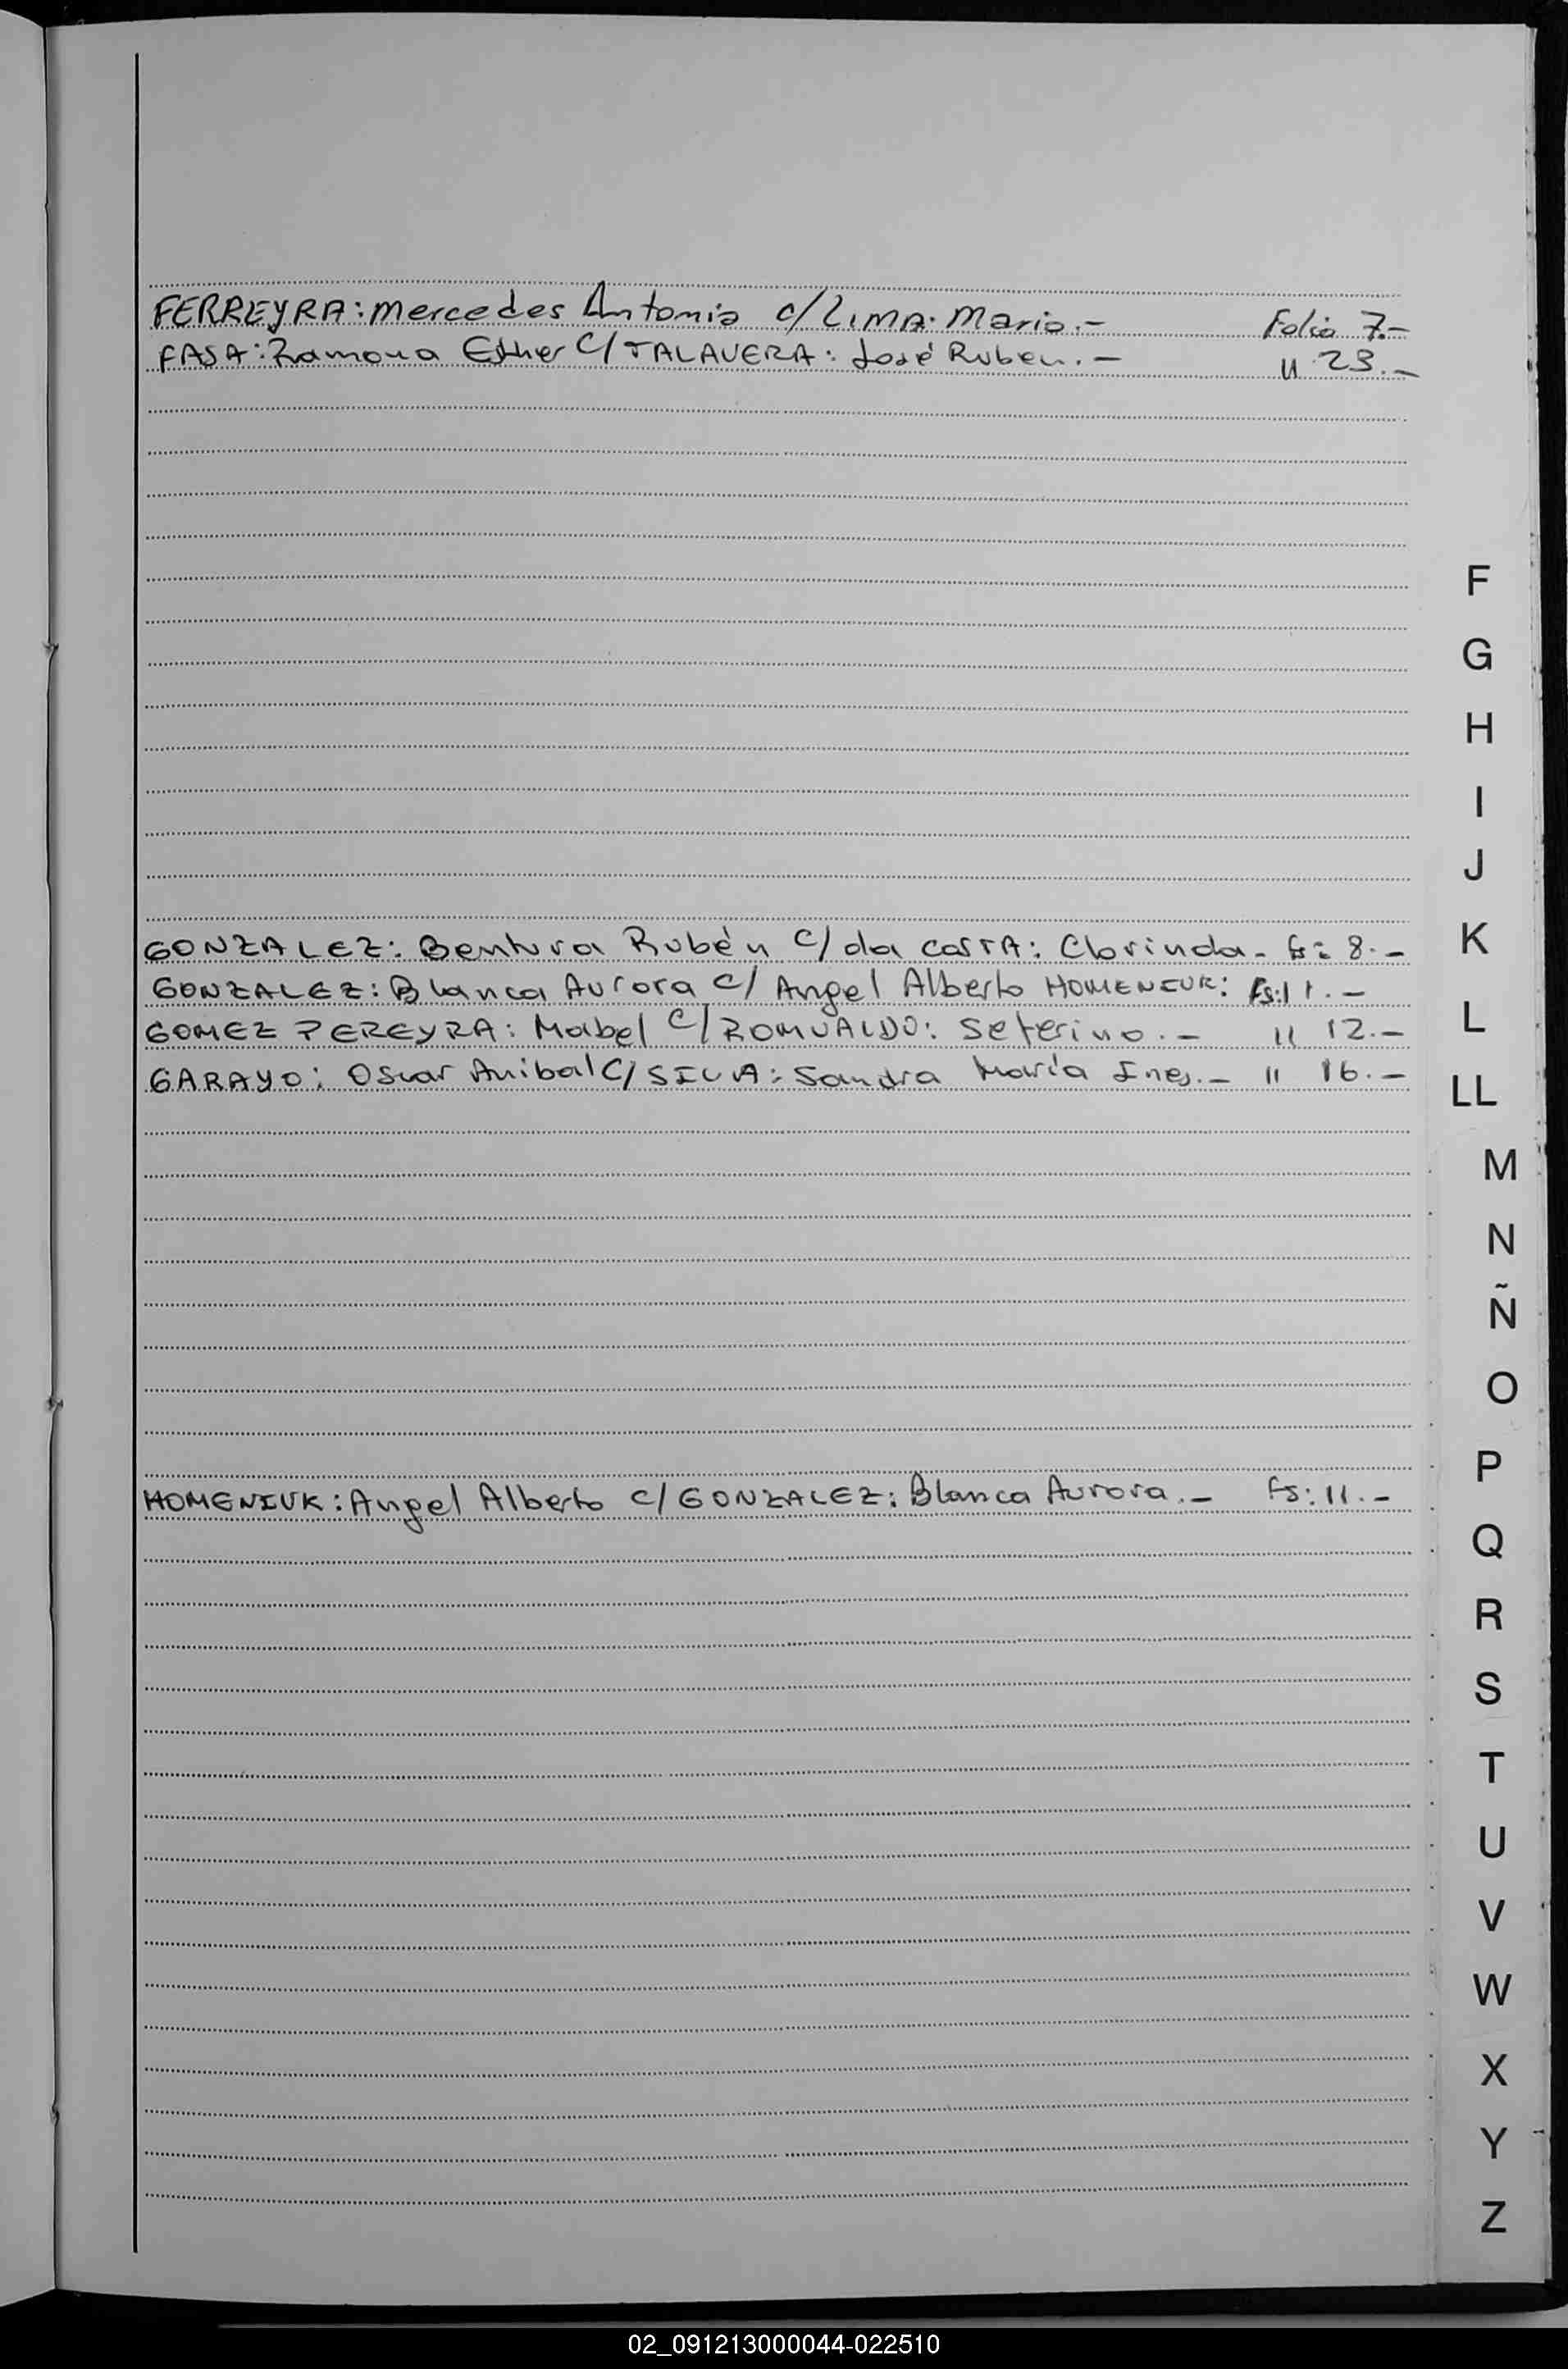 FERREYRA: Mercedes Antonia c/ LIMA: Mario.- Folio 7.-
FASA: Ramona Esther C/ TALAVERA: José Ruben.- " 23.-
GONZALEZ: Bentura Rubén C/ da COSTA: Clorinda.- Fs: 8.-
GONZALEZ: Blanca Aurora C/ Angel Alberto HOMENIUK: Fs: 11.-
GOMEZ PEREYRA: Mabel C/ ROMUALDO: Seferino.- " 12.-
GARAYO: Oscar Anibal C/ SILVA: Sandra María Ines.- " 16.-
HOMENIUK: Angel Alberto c/ GONZALEZ: Blanca Aurora.- Fs: 11.-
F
G
H
I
J
K
L
LL
M
N
Ñ
O
P
Q
R
S
T
U
V
W
X
Y
Z
02_091213000044-022510